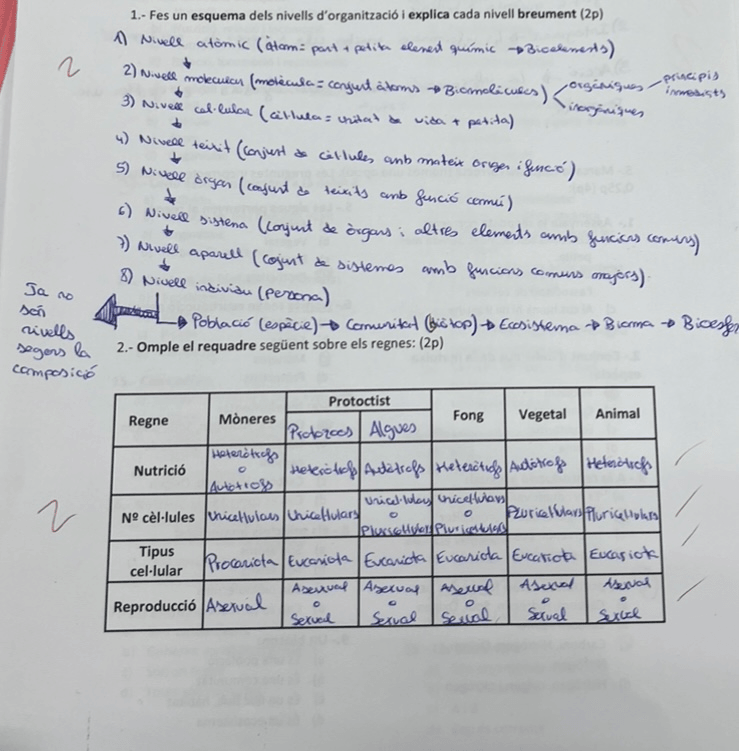 1.- Fes un esquema dels nivells d'organització i explica cada nivell breument (2p)
2
1) Nivell atòmic (àtom = part + petita element químic → Bioelements)
2) Nivell molecular (molècula = conjunt àtoms → Biomolècules) orgàniques principis immediats
inorgàniques
3) Nivell cel·lular (cèl·lula = unitat de vida + petita)
4) Nivell teixit (conjunt de cèl·lules amb mateix origen i funció)
5) Nivell òrgan (conjunt de teixits amb funció comú)
6) Nivell sistema (conjunt de òrgans i altres elements amb funcions comuns)
7) Nivell aparell (conjunt de sistemes amb funcions comuns majors).
8) Nivell individu (persona)
Ja no
són
nivells
segons la
composició
→ Població (espècie) → Comunitat (biòtop) → Ecosistema → Bioma → Biosfera
2.- Omple el requadre següent sobre els regnes: (2p)
2
Regne Mòneres Protoctist Fong Vegetal Animal
Protozoos Algues
Nutrició Heteròtrofs o Autòtrofs Heteròtrofs Autòtrofs Heteròtrofs Autòtrofs Heteròtrofs
Nº cèl·lules Unicel·lulars Unicel·lulars Unicel·lulars o Pluricel·lulars Unicel·lulars o Pluricel·lulars Pluricel·lulars Pluricel·lulars
Tipus cel·lular Procariota Eucariota Eucariota Eucariota Eucariota Eucariota
Reproducció Asexual Asexual o Sexual Asexual o Sexual Asexual o Sexual Asexual o Sexual Asexual o Sexual